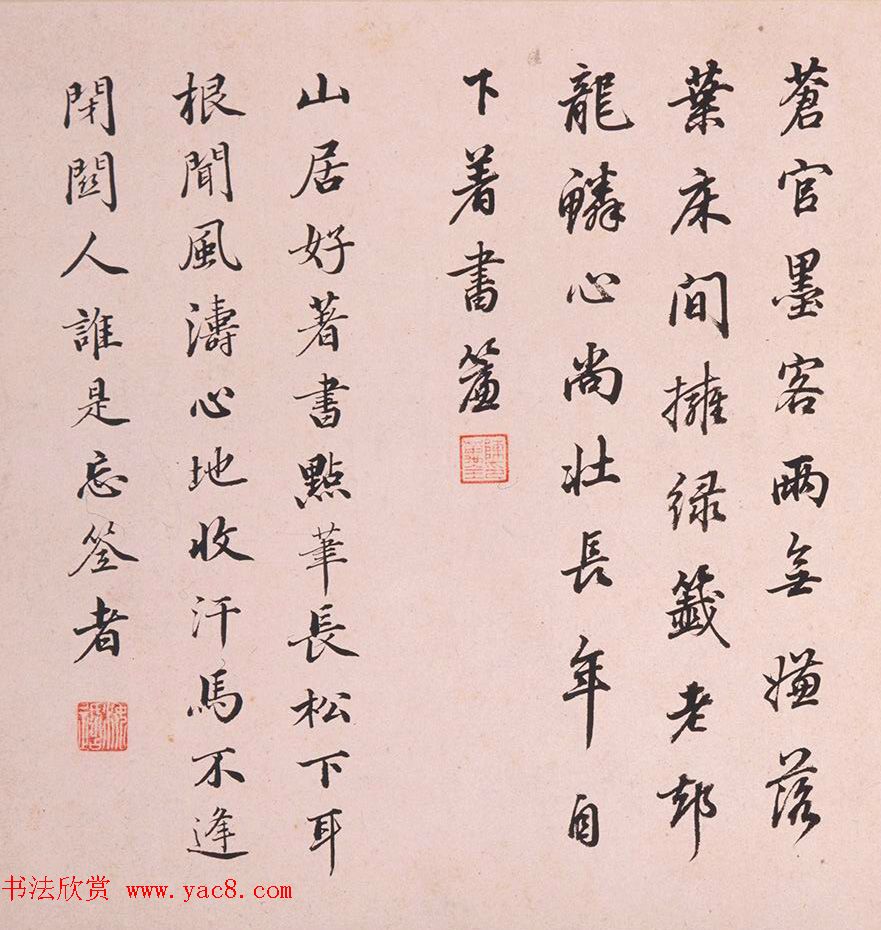 蒼官墨客兩無嫌落
葉床間擁緑籤老却
龍鱗心尚壯長年自
下着書簾
山居好著書點筆長松下耳
根聞風濤心地收汗馬不逢
閉關人誰是忘筌者
书法欣赏 www.yac8.com